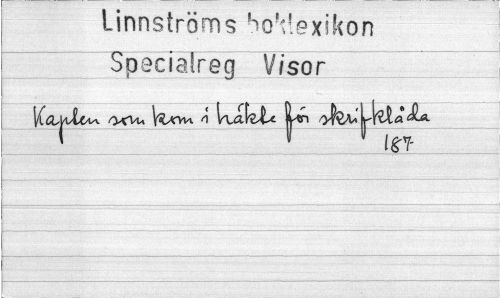 Linnströms boklexikon
Specialreg Visor
Kapten som kom i häkte för skrifklåda
187-